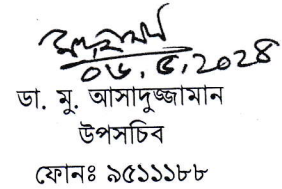 ০৬.৫.২০২৪
ডা. মু. আসাদুজ্জামান
উপসচিব
ফোনঃ ৯৫১১১৮৮